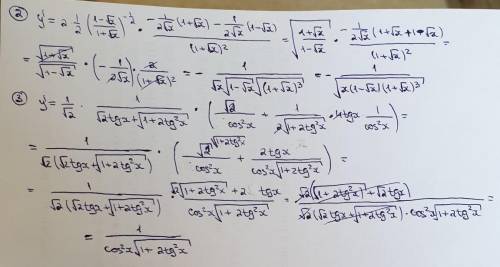 ② y' = 2 · 1/2 ((1-√x)/(1+√x))^(-1/2) · (-1/(2√x) (1+√x) - 1/(2√x) (1-√x))/((1+√x)²) = √((1+√x)/(1-√x)) · (-1/(2√x) (1+√x+1-√x))/((1+√x)²) =
= √(1+√x)/√(1-√x) · (-1/(2√x)) · 2/((1+√x)²) = - 1/(√x √(1-√x) √((1+√x)³)) = - 1/√(x(1-√x)(1+√x)³)
③ y' = 1/√2 · 1/(√2tgx+√(1+2tg²x)) · (√2/cos²x + 1/(2√(1+2tg²x)) · 4tgx · 1/cos²x) =
= 1/(√2(√2tgx+√(1+2tg²x))) · (√2^(√(1+2tg²x))/cos²x + 2tgx/(cos²x√(1+2tg²x))) =
= 1/(√2(√2tgx+√(1+2tg²x))) · (√2√(1+2tg²x)+2 tgx)/(cos²x√(1+2tg²x)) = √2(√(1+2tg²x)+√2tgx)/(√2(√2tgx+√(1+2tg²x)) · cos²x√(1+2tg²x)) =
= 1/(cos²x√(1+2tg²x))